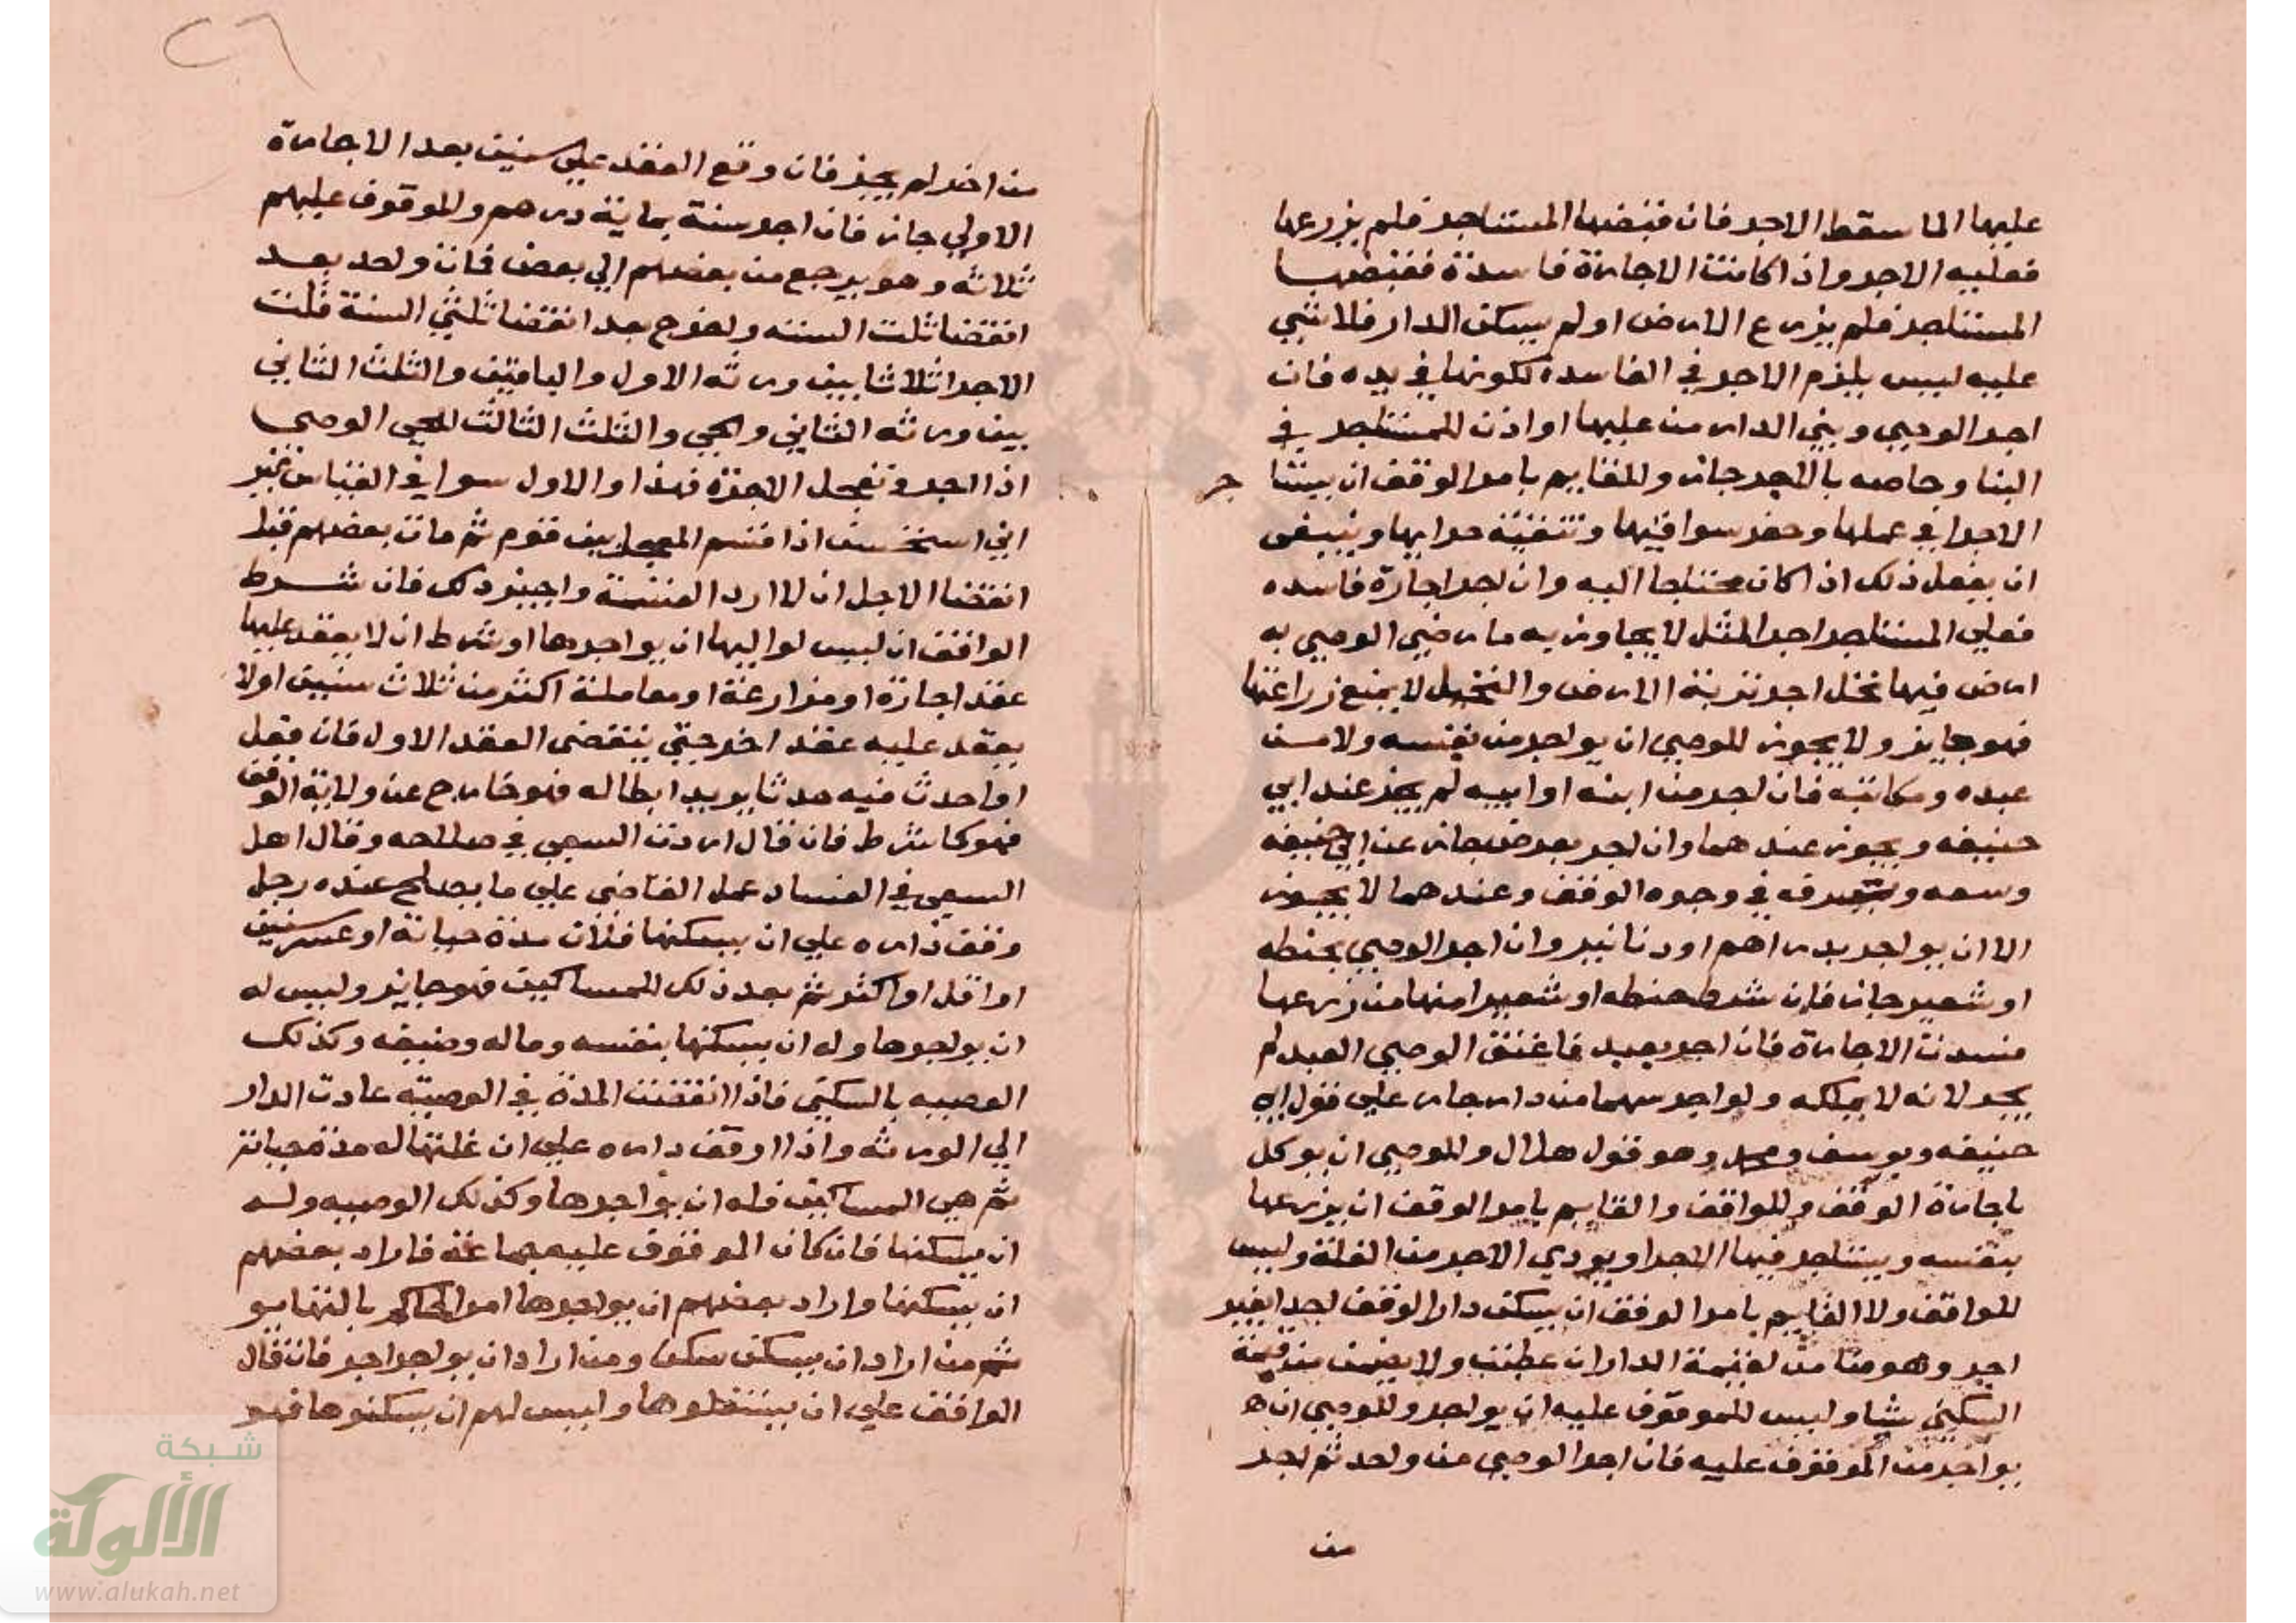 عليها الما سقط الاجر فان قبضها المستاجر فلم يزرعها
فعليه الاجر واذا كانت الاجارة فاسدة فقبضها
المستاجر فلم يزرع الارض او لم يسكن الدار فلا شي
عليه ليس يلزم الاجر في الفاسدة لكونها في يده فان
اجر الوصي وبني الدار من عليها او اذن للمستاجر في
البنا وحاصه بالاجر جاز وللقايم بامر الوقف ان
الاجرا في عملها وحفر سواقيها وتنقية
ان يفعل ذلك اذا كان محتاجا اليه وان اجر اجارة فاسده
فعلي المستاجر اجر المثل لا يجاوز به ما رضي الوصي به
ارض فيها نخل اجر تربة الارض والنخيل لا يمنع زراعتها
فهو جايز ولا يجوز للوصي ان يواجر من نفسه ولا من
عبده ومكاتبه فان اجر من ابنه او ابيه لم يجز عند ابي
حنيفه ويجوز عندهما وان اجر بعرض جاز عن ابي حنيفه
وسعه ويتصرفه في وجوه الوقف وعندهما لا يجوز
الا ان يواجر بدراهم او دنانير وان اجر الوصي بحنطه
او شعير جاز فان شرط حنطه او شعيرا منها من زرعها
فسدت الاجارة فان اجر بعبد فاعتق الوصي العبد لم
يجر لانه لا يملكه ولو اجر سهما من دار جاز علي قول ابي
حنيفه ويوسف ومحمد وهو قول هلال وللوصي ان يوكل
باجارة الوقف وللواقف والقايم بامر الوقف ان يزرعها
بنفسه ويستاجر فيها الاجرا ويودي الاجر من الغلة وليس
للواقف ولا القايم بامر الوقف ان يسكن دار الوقف احدا بغير
اجر وهو ضامن لقيمة الدار ان عطبت ولا يضمن من قيمة
السكني شيا وليس للموقوف عليه ان يواجر وللوصي ان
يواجر من الموقوف عليه فان اجر الوصي من واحد ثم اجر
من
٢٦
من اخر لم يجز فان وقع العقد علي سنين بعد الاجارة
الاولي جاز فان اجر سنة بماية درهم والموقوف عليهم
ثلاثه وهو يرجع من بعضهم الي بعض فمات واحد بعد
انقضا ثلث السنه واخر بعد انقضا ثلثي السنة قلت
الاجر اثلاثا بين ورثه الاول والباقين والثلث الثاني
بين ورثه الثاني والحي والثلث الثالث للحي الوصي
اذا اجر وتعجل الاجرة فهذا والاول سوا في القياس غير
اني استحسن اذا قسم المعجل بين قوم ثم مات بعضهم قبل
انقضا الاجل ان لا ارد القسمة واجيز ذلك فان شرط
الواقف ان ليس لواليها ان يواجرها او شرط ان لا يعقد عليها
عقد اجارة او مزارعة او معاملة اكثر من ثلاث سنين او لا
يعقد عليه عقد اخر حتي ينقضي العقد الاول فان فعل
او احدث فيه حدثا يريد ابطاله فهو خارج عن ولاية الوقف
فهو كما شرط فان قال اردت السعي في صلاحه وقال اهل
السعي في الفساد عمل القاضي علي ما يصلح عنده رجل
وقف داره علي ان يسكنها فلان مدة حياته او عشر سنين
او اقل او اكثر ثم بعد ذلك للمساكين فهو جايز وليس له
ان يواجرها وله ان يسكنها بنفسه وماله وضيفه وكذلك
الوصيه بالسكني فاذا انقضت المدة في الوصيته عادت الدار
الي الورثه واذا اوقف داره علي ان غلتها له مدة حياته
ثم هي المساكين فله ان يواجرها وكذلك الوصيه وله
ان يسكنها فان كان الموقوف عليه جماعة فاراد بعضهم
ان يسكنها واراد بعضهم ان يواجرها امر الحاكم بالتهايو
ثم من اراد ان يسكن سكن ومن اراد ان يواجر اجر فان قال
الواقف علي ان يستغلوها وليس لهم ان يسكنوها فهو
شبكة
الألوكة
www.alukah.net